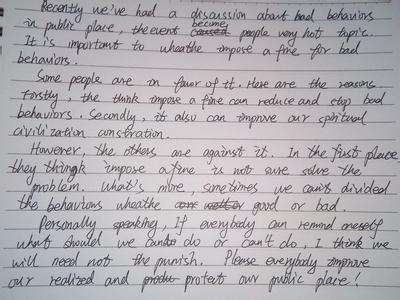 Recently we've had a discussion about bad behaviors
in public place, the event become people very hot topic.
It is important to wheathe impose a fine for bad
behaviors.
Some people are in favor of it. Here are the reasons.
Firstly, the think impose a fine can reduce and stop bad
behaviors. Secondly, it also can improve our spiritual
civilization constration.
However, the others are against it. In the first place,
they thingk impose a fine is not sure solve the
problem. What's more, sometimes we can't divided
the behaviors wheathe good or bad.
Personally speaking, If everybody can remind oneself
what should we do or can't do, I think we
will need not the punish. Please everybody improve
our realized and protect our public place!